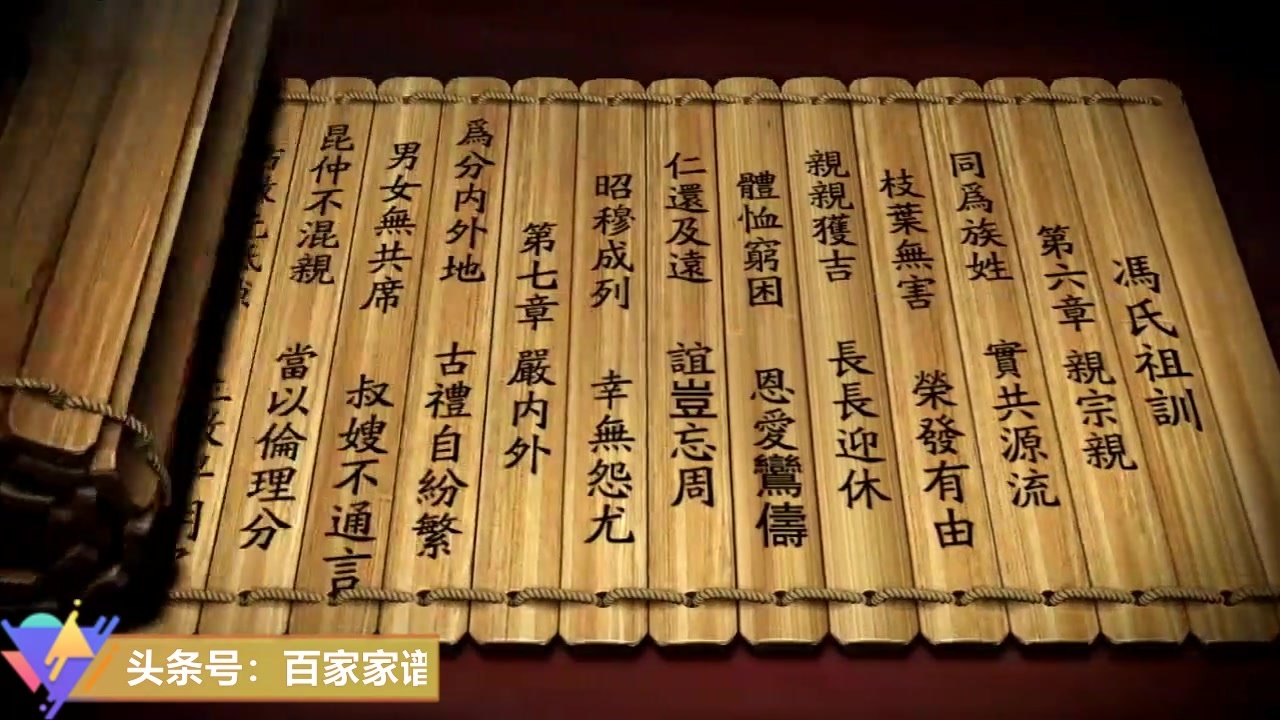 馮氏祖訓
第六章 親宗親
同爲族姓 實共源流
枝葉無害 榮發有由
親親獲吉 長長迎休
體恤窮困 恩愛鸞儔
仁還及遠 誼豈忘周
昭穆成列 幸無怨尤
第七章 嚴内外
爲分内外地 古禮自紛繁
男女無共席 叔嫂不通言
昆仲不混親 當以倫理分
头条号：百家家谱